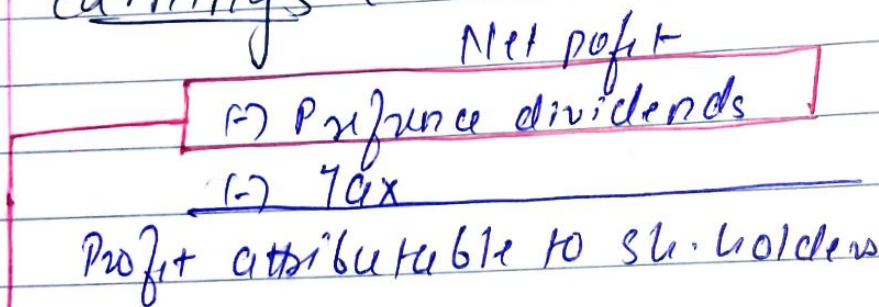 Earnings
Net pofit
(-) Prefrence dividends
(-) Tax
Profit attributable to sh. holders